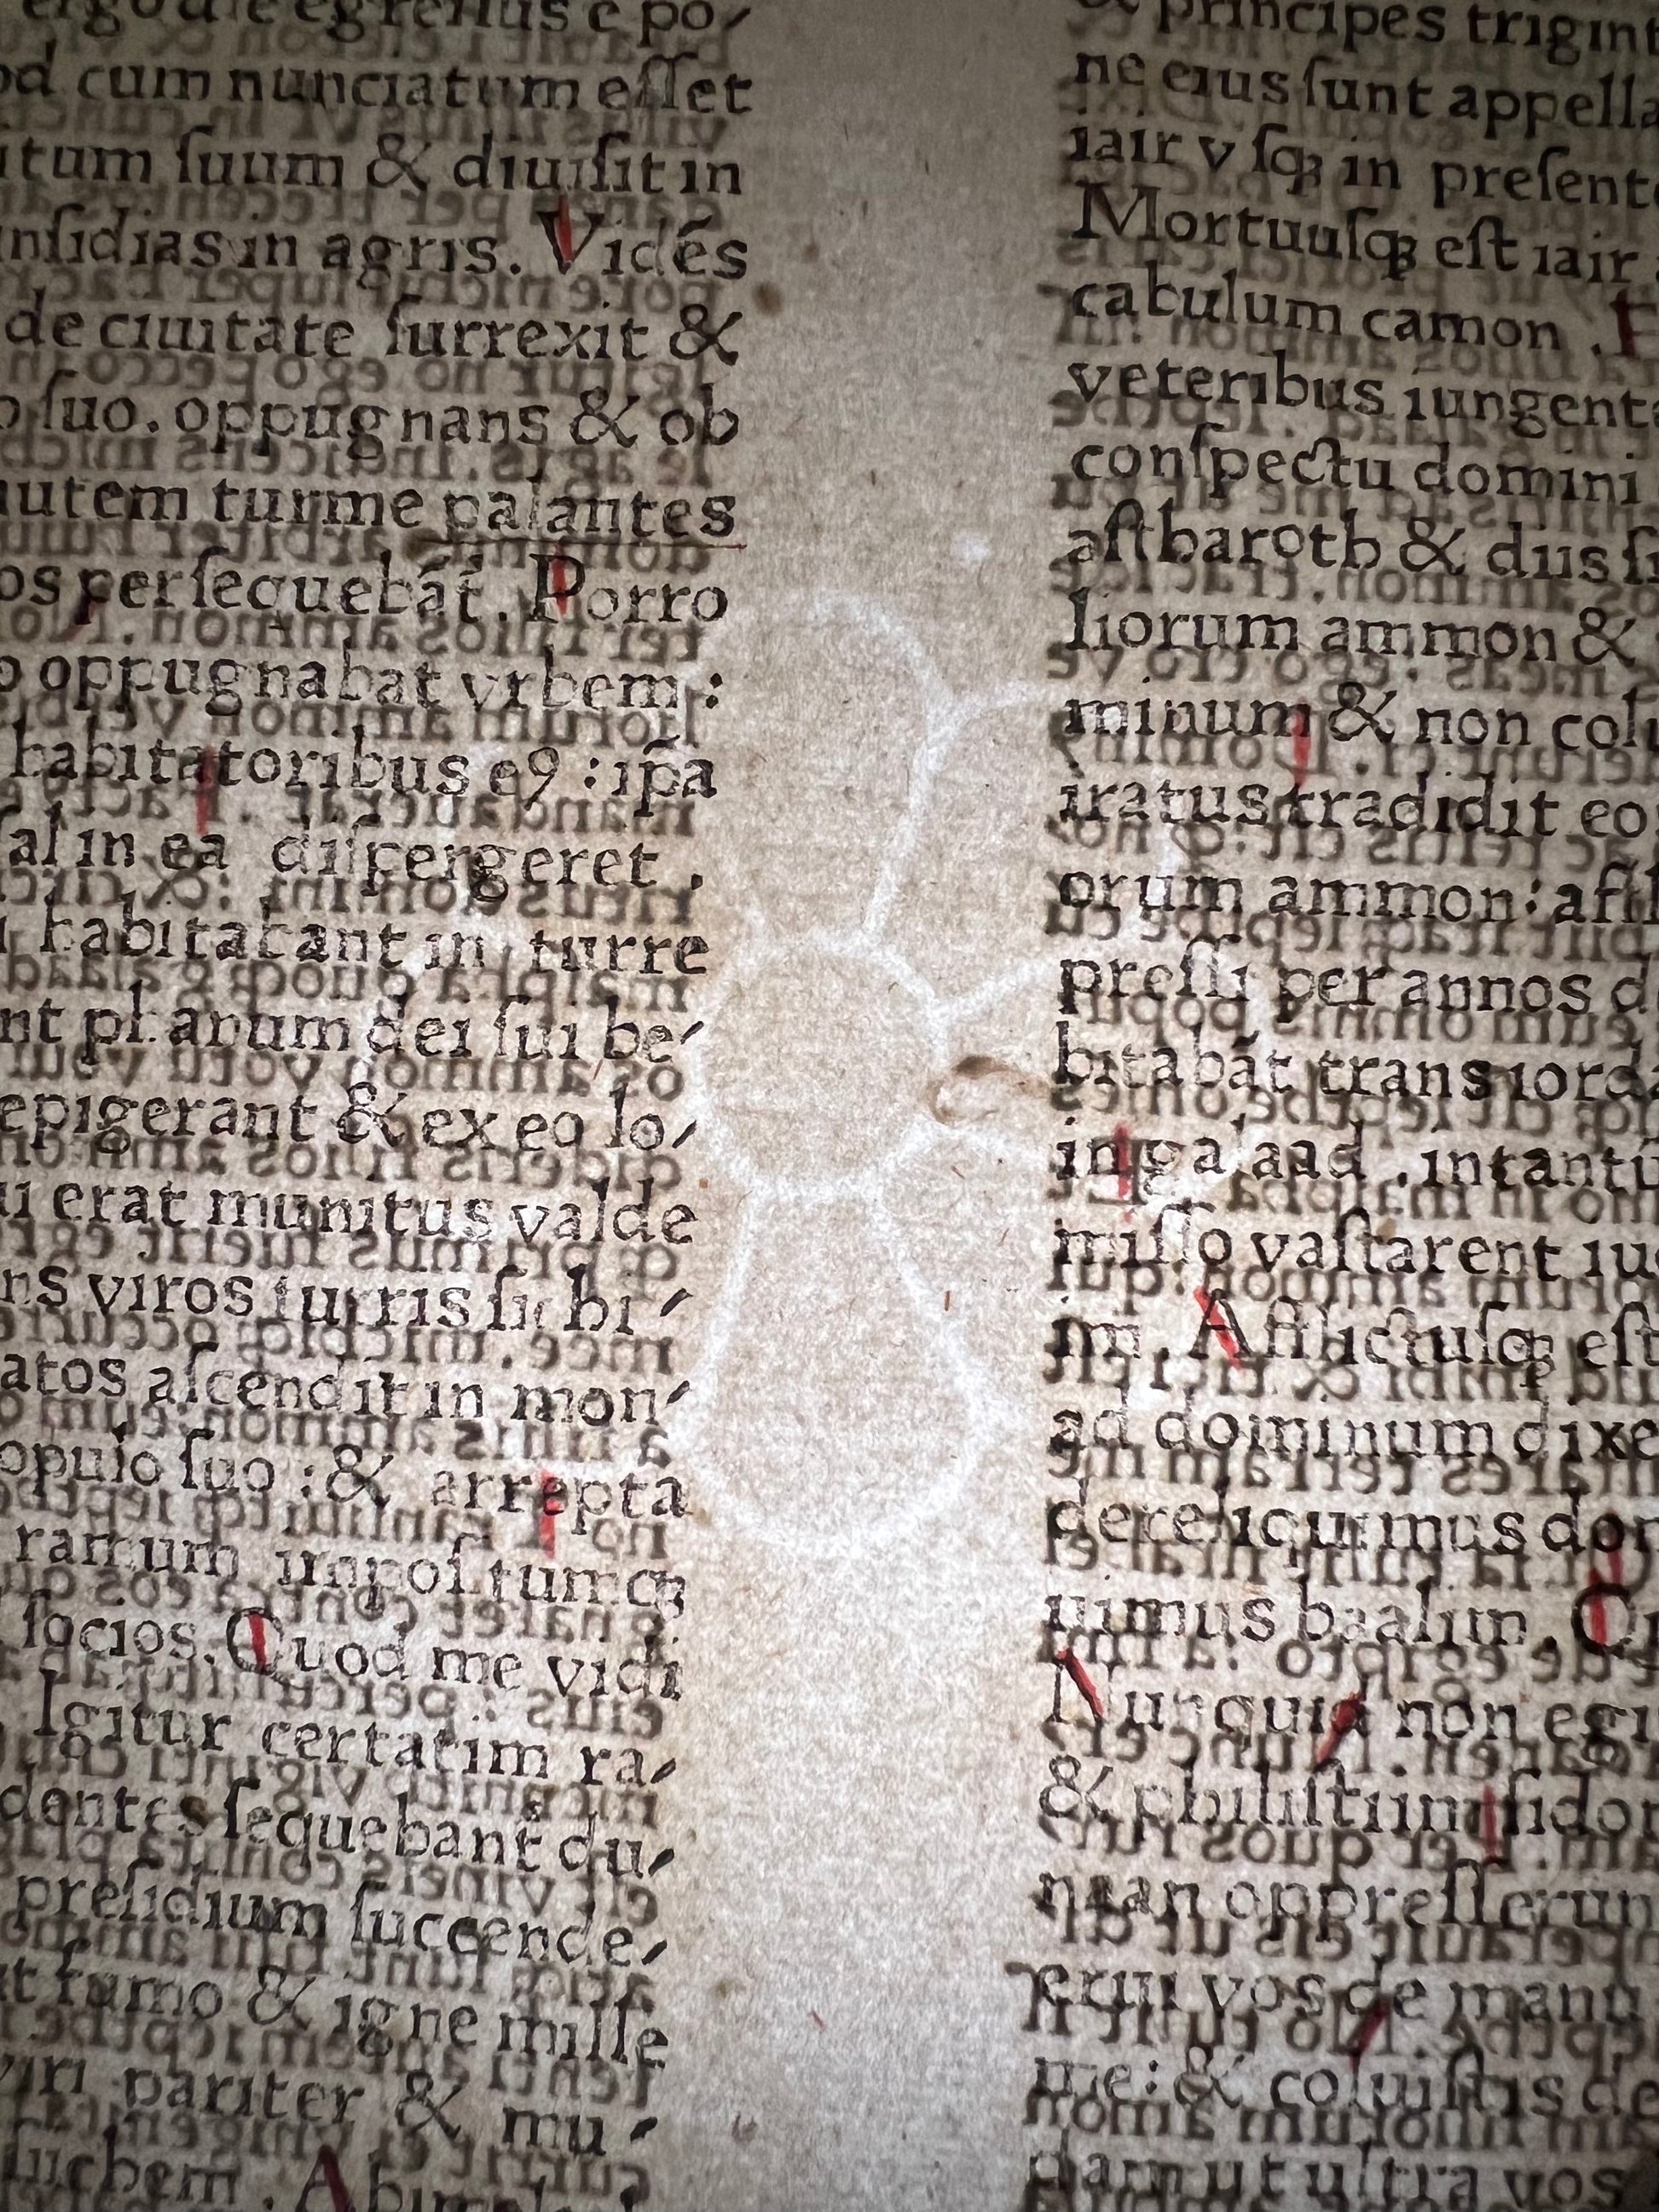 ergo die egressus e po⸗
od cum nunciatum eſſet
itum ſuum & diuiſit in
inſidias in agris. Vidēs
de ciuitate ſurrexit &
o ſuo. oppugnans & ob
autem turme palantes
os perſequebāt. Porro
o oppugnabat vrbem :
habitatoribus eꝯ : ip̄a
ſal in ea diſpergeret .
habitabant in turre
nt phanum dei ſui be⸗
epigerant & ex eo lo⸗
ui erat munitus valde
ns viros turris ſichi⸗
atos aſcendit in mon⸗
opulo ſuo : & arrepta
ramum impoſitumqꝫ
ſocios. Quod me vidi
Igitur certatim ra⸗
dentes ſequebant du⸗
preſidium ſuccende⸗
ut fumo & igne mille
viri pariter & mu⸗
luchem . Abimele
& principes trigint
ne eius ſunt appella
iair vſqꝫ in preſente
Mortuuſqꝫ eſt iair
cabulum camon .
veteribus iungent
conſpectu domini
aſtharoth & diis ſi
liorum ammon &
minum & non colu
iratus tradidit eo
orum ammon : afſl
preſſi per annos d
bitabāt trans iorda
in galaad . intantū
miſſo vaſtarent iu
im . Afflictuſqꝫ eſt
ad dominum dixe
dereliquimus dom
uimus baalim . Q
Nunquid non egi
& philiſtiim ſidon
naan oppreſſerun
erui vos de manu
me : & coluiſtis de
dam ut ultra vos